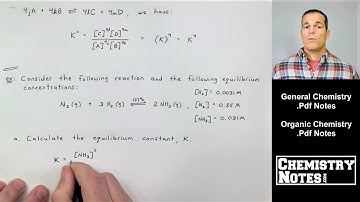 ... njA + nkB ⇌ nlC + nmD, we have:
K" = [C]ⁿˡ [D]ⁿᵐ / [A]ⁿʲ [B]ⁿᵏ = (K)ⁿ = Kⁿ
ex: Consider the following reaction and the following equilibrium
concentrations:
N₂(g) + 3 H₂(g) ⇌ 2 NH₃(g)
[N₂] = 0.0031 M
[H₂] = 0.85 M
[NH₃] = 0.031 M
a. Calculate the equilibrium constant, K.
K = [NH₃]²
General Chemistry
.Pdf Notes
Organic Chemistry
.Pdf Notes
CHEMISTRY
NOTES.COM